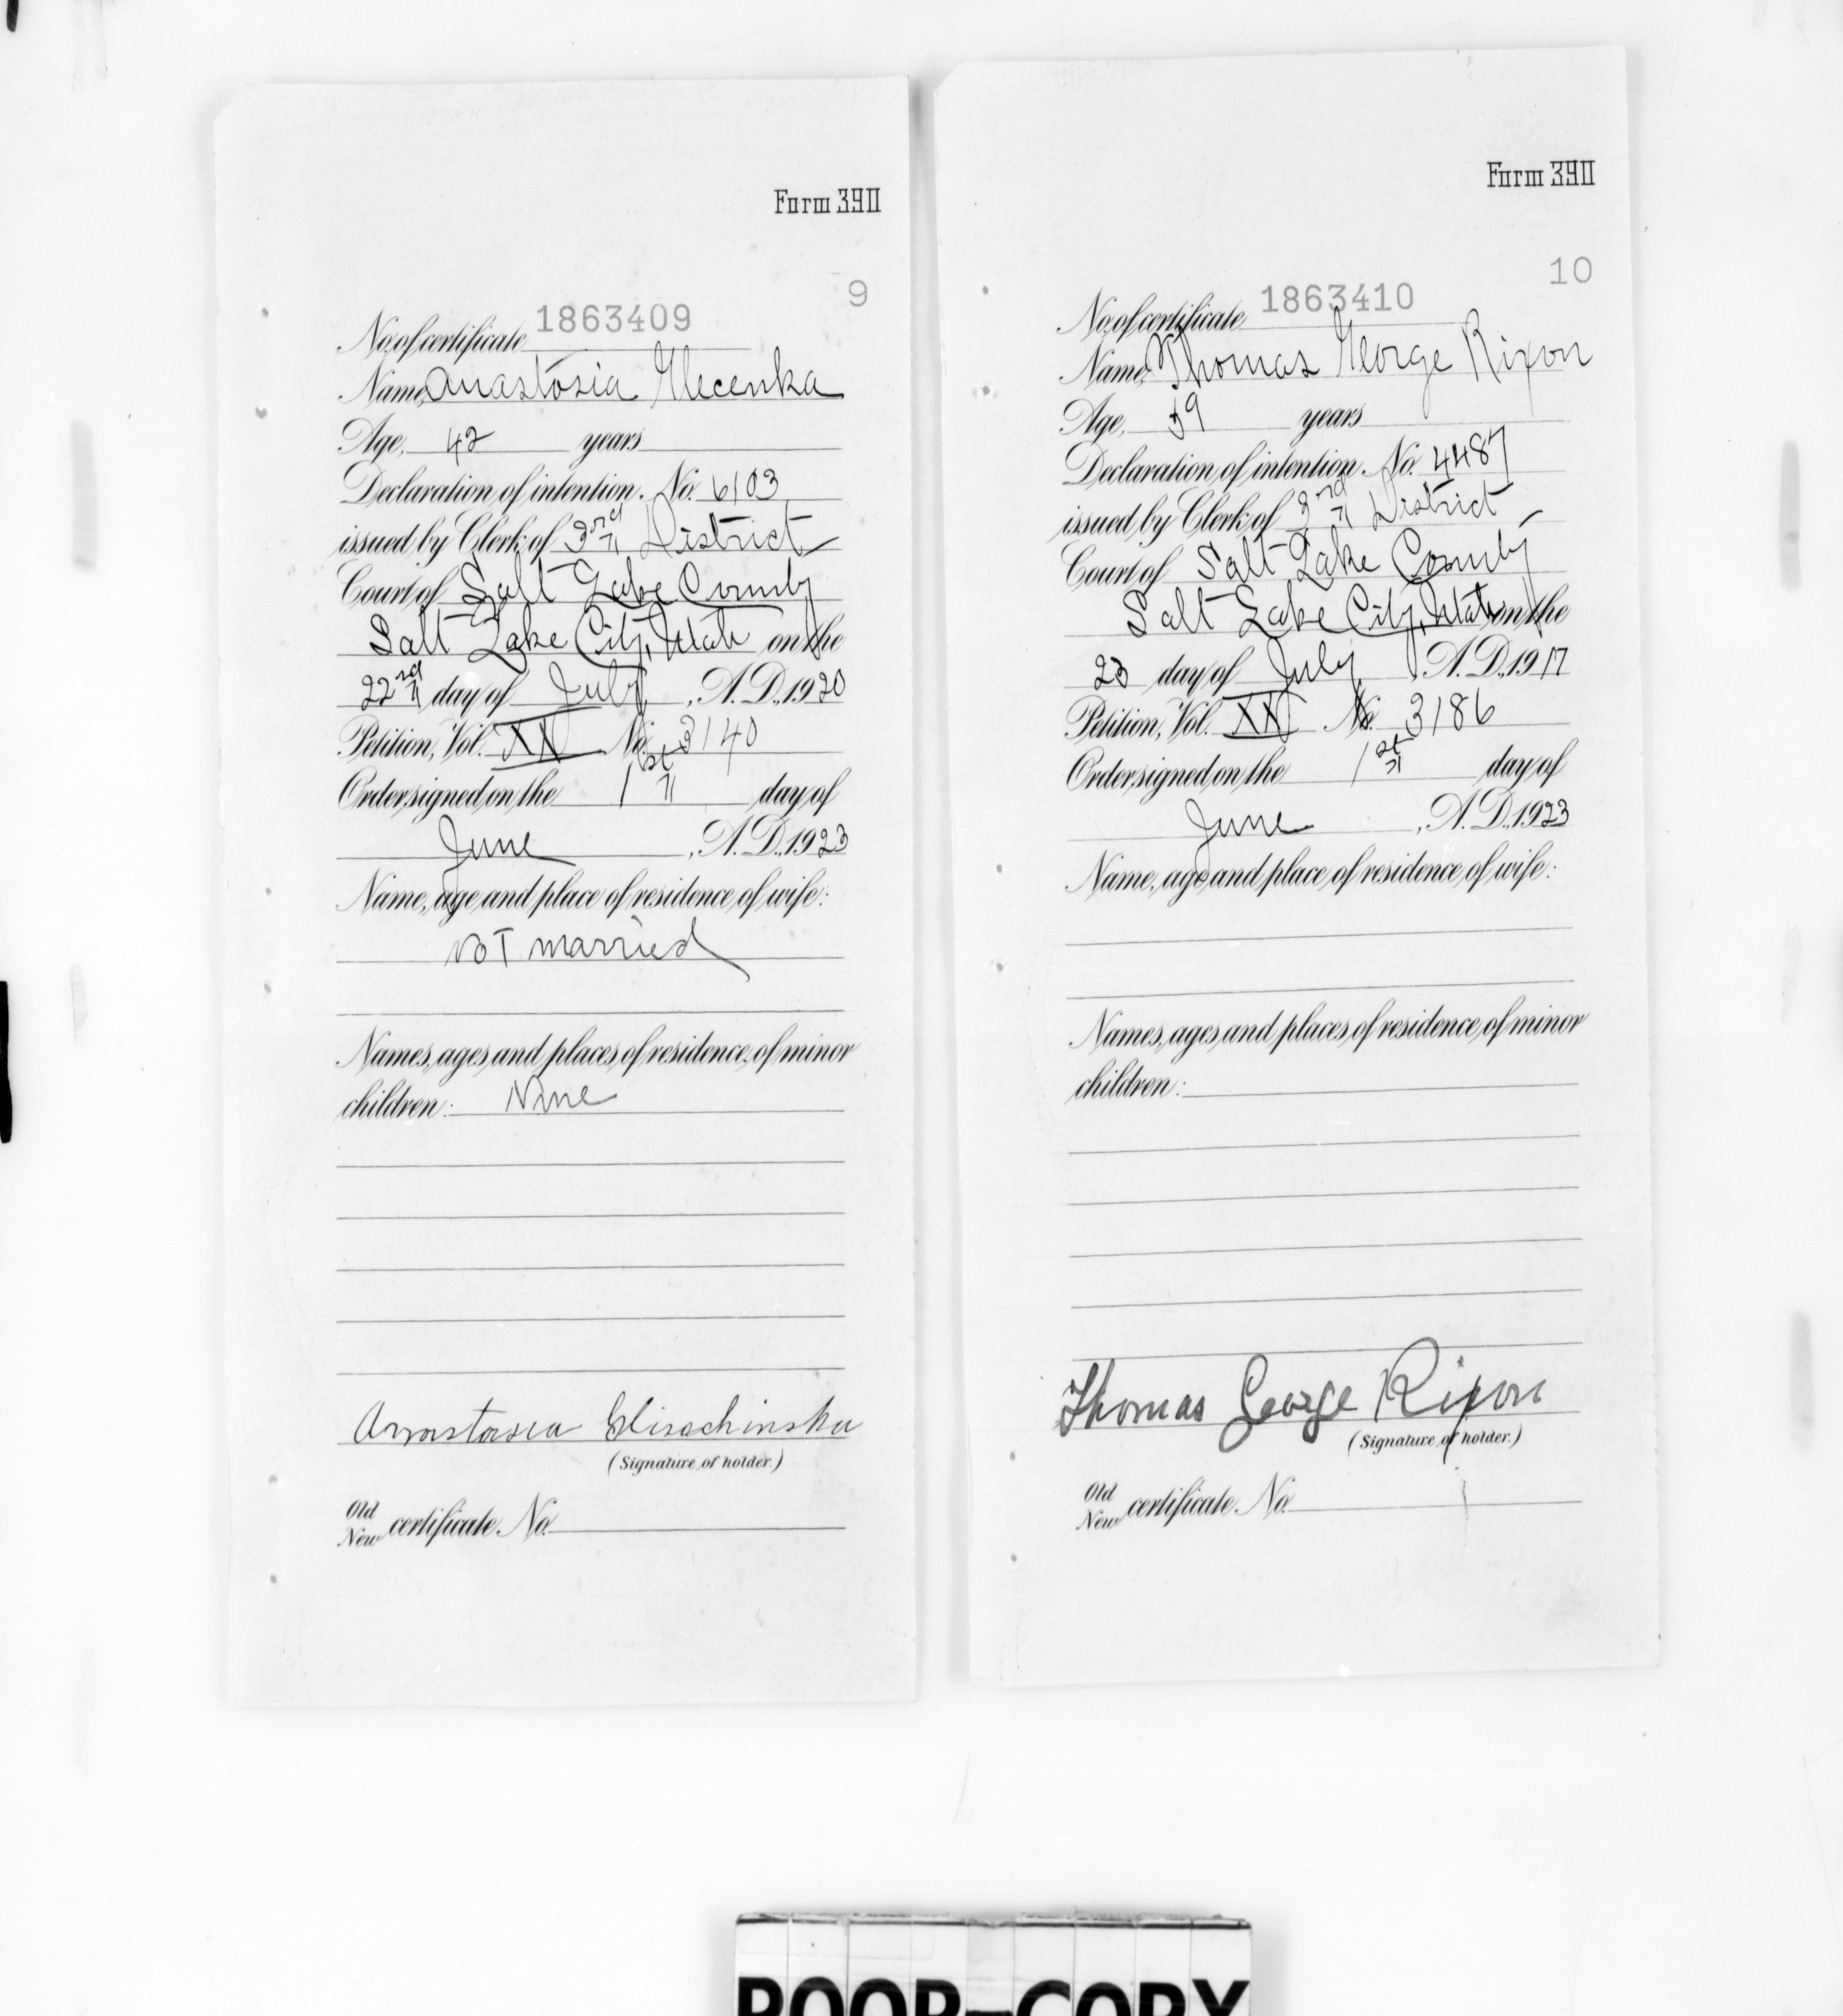 Form 390
9
No. of certificate 1863409
Name Anastosia Glecenka
Age, 42 years
Declaration of intention, No. 6103
issued by Clerk of 3rd District
Court of Salt Lake County
Salt Lake City, Utah on the
22nd day of July, A.D. 1920
Petition, Vol. XX No. 3140
Order signed on the 1st day of
June, A.D. 1923
Name, age and place of residence of wife:
Not married
Names, ages and places of residence of minor
children: None
Anastasia
(Signature of holder.)
Old
New certificate No.
Form 390
10
No. of certificate 1863410
Name, Thomas George Rixon
Age, 39 years
Declaration of intention, No. 4487
issued by Clerk of 3rd District
Court of Salt Lake County
Salt Lake City, Utah on the
23 day of July, A.D. 1917
Petition, Vol. XX No. 3186
Order signed on the 1st day of
June, A.D. 1923
Name, age and place of residence of wife:
Names, ages and places of residence of minor
children:
Thomas George Rixon
(Signature of holder.)
Old
New certificate No.
POOR-COPY